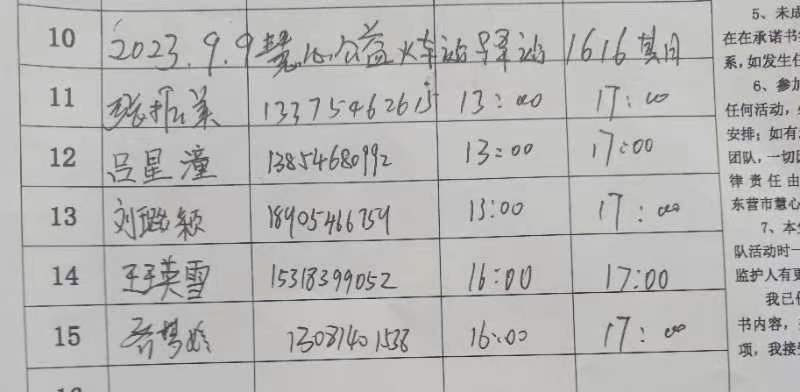 10 2023.9.9 慧心公益火车站驿站 1616 其日
11 张振美 13375462615 13:00 17:00
12 吕星潼 13854680992 13:00 17:00
13 刘璐颖 18905466759 13:00 17:00
14 王英雪 15318399052 16:00 17:00
15 齐梦婷 13081401538 16:00 17:00
5、未成
在在承诺书
系,如发生任
6、参加
任何活动,
安排;如有
团队,一切
律责任由
东营市慧心
7、本
队活动时一
监护人有更
我已
书内容,
项,我接